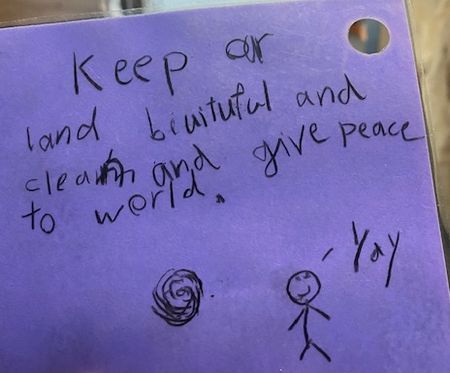 Keep or
land biuituful and
clean and give peace
to world.
Yay